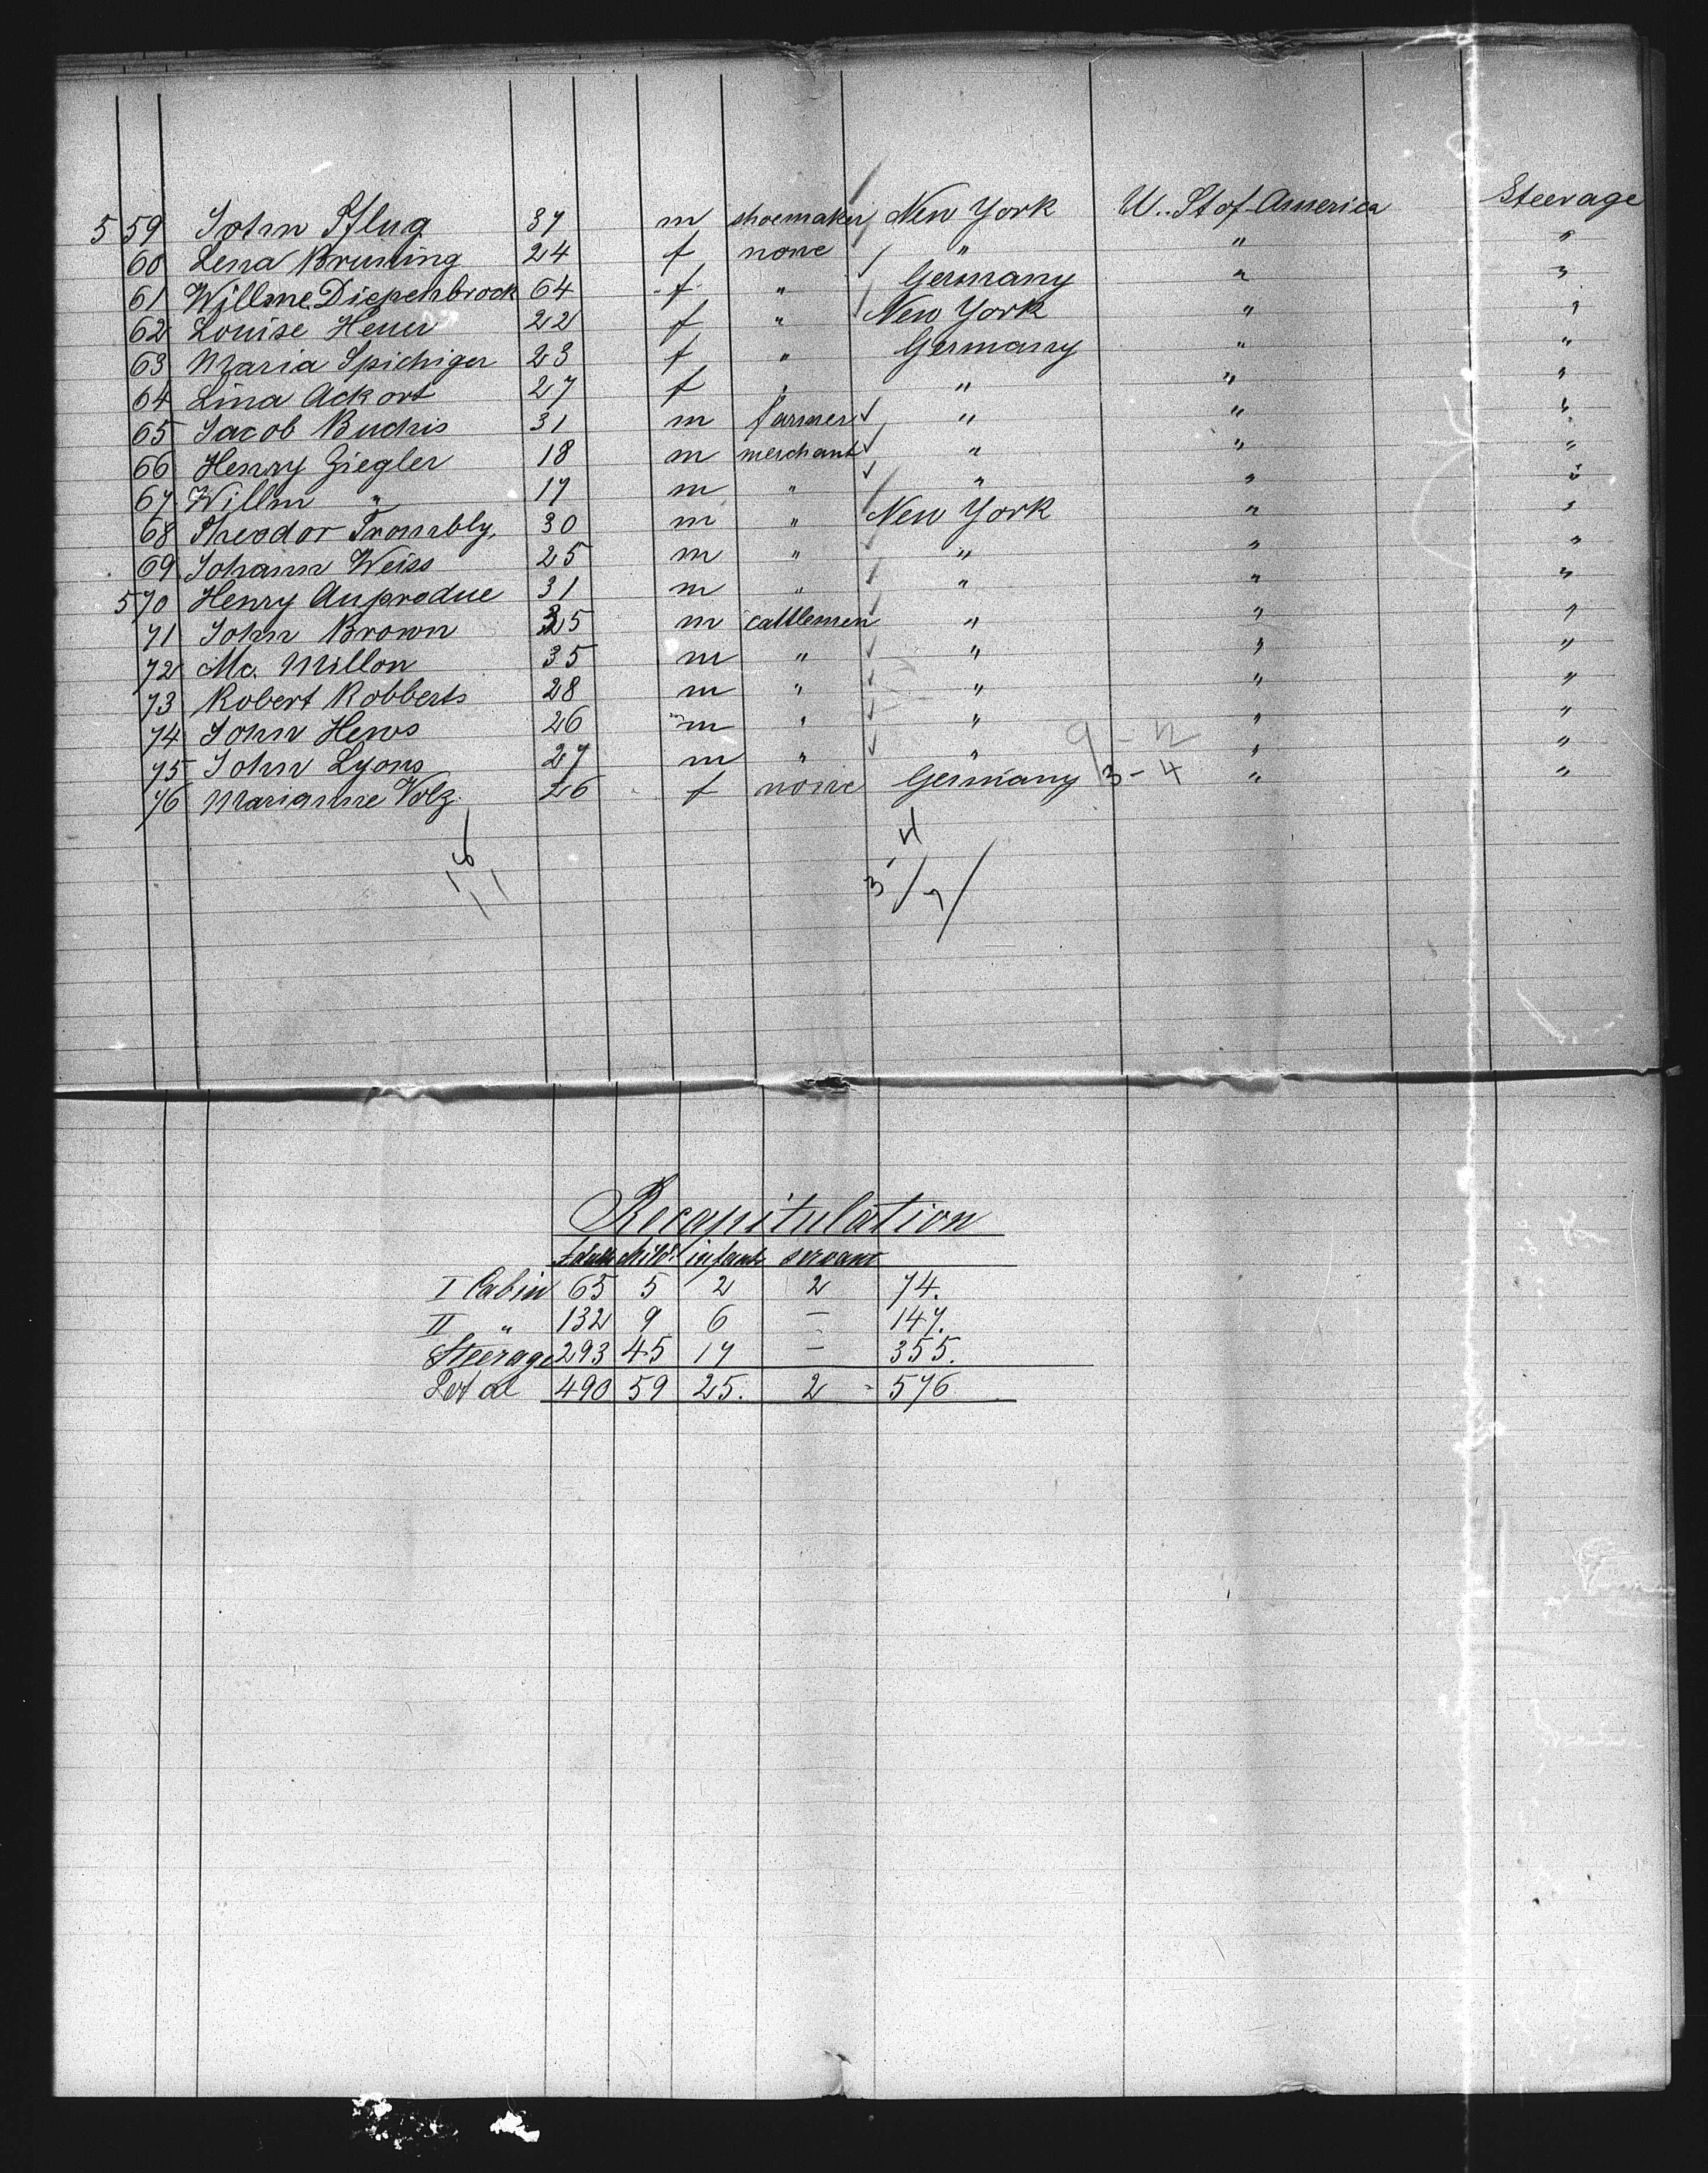 559 John Pflug 37 m shoemaker New York U. St of America Steerage
60 Lena Brüning 24 f none " " "
61 Willme Diepenbrock 64 f " Germany " "
62 Louise Heuer 22 f " New York " "
63 Maria Spichiger 23 f " Germany " "
64 Lina Ackort 27 f " " " "
65 Jacob Buchis 31 m farmer " " "
66 Henry Ziegler 18 m merchant " " "
67 Willm " 17 m " " " "
68 Theodor Trombly 30 m " New York " "
69 Johann Weiss 25 m " " " "
570 Henry Auprodue 31 m " " " "
71 John Brown 35 m cattlemen " " "
72 Mc. Millon 35 m " " " "
73 Robert Robberts 28 m " " " "
74 John Hews 26 m " " " "
75 John Lyons 27 m " " " "
76 Marianne Volz 26 f none Germany 3-4 " "
Recapitulation
Adults child. infants servant
I Cabin 65 5 2 2 74.
II " 132 9 6 — 147.
Steerage 293 45 17 — 355.
Total 490 59 25. 2 576